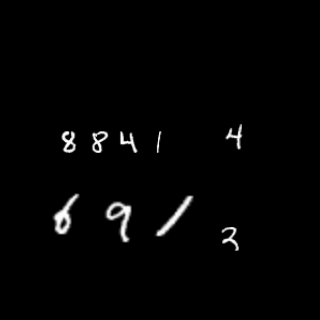 8 8 4 1 4
6 9 1 2